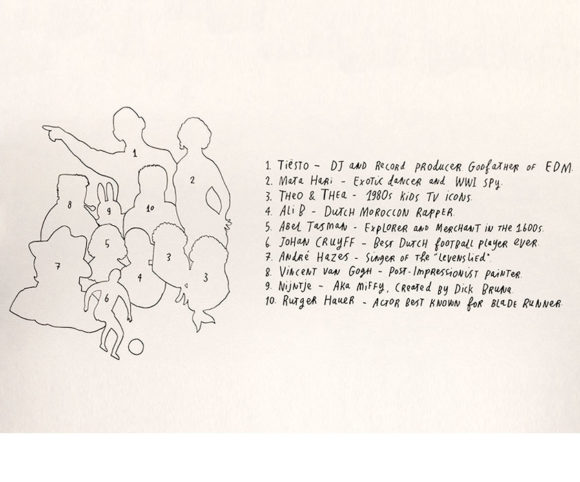 1
2
8
9
10
5
3
7
4
3
6
1. Tiësto - DJ and Record producer. Godfather of EDM.
2. Mata Hari - Exotic dancer and WWI spy.
3. Theo & Thea - 1980s kids TV icons.
4. Ali B - Dutch Moroccon Rapper.
5. Abel Tasman - Explorer and Merchant in the 1600s.
6 Johan Cruyff - Best Dutch football player ever.
7. André Hazes - Singer of the "levenslied".
8. Vincent van Gogh - Post-Impressionist painter.
9. Nijntje - Aka Miffy, created by Dick Bruna.
10. Rutger Hauer - Actor best known for Blade Runner.